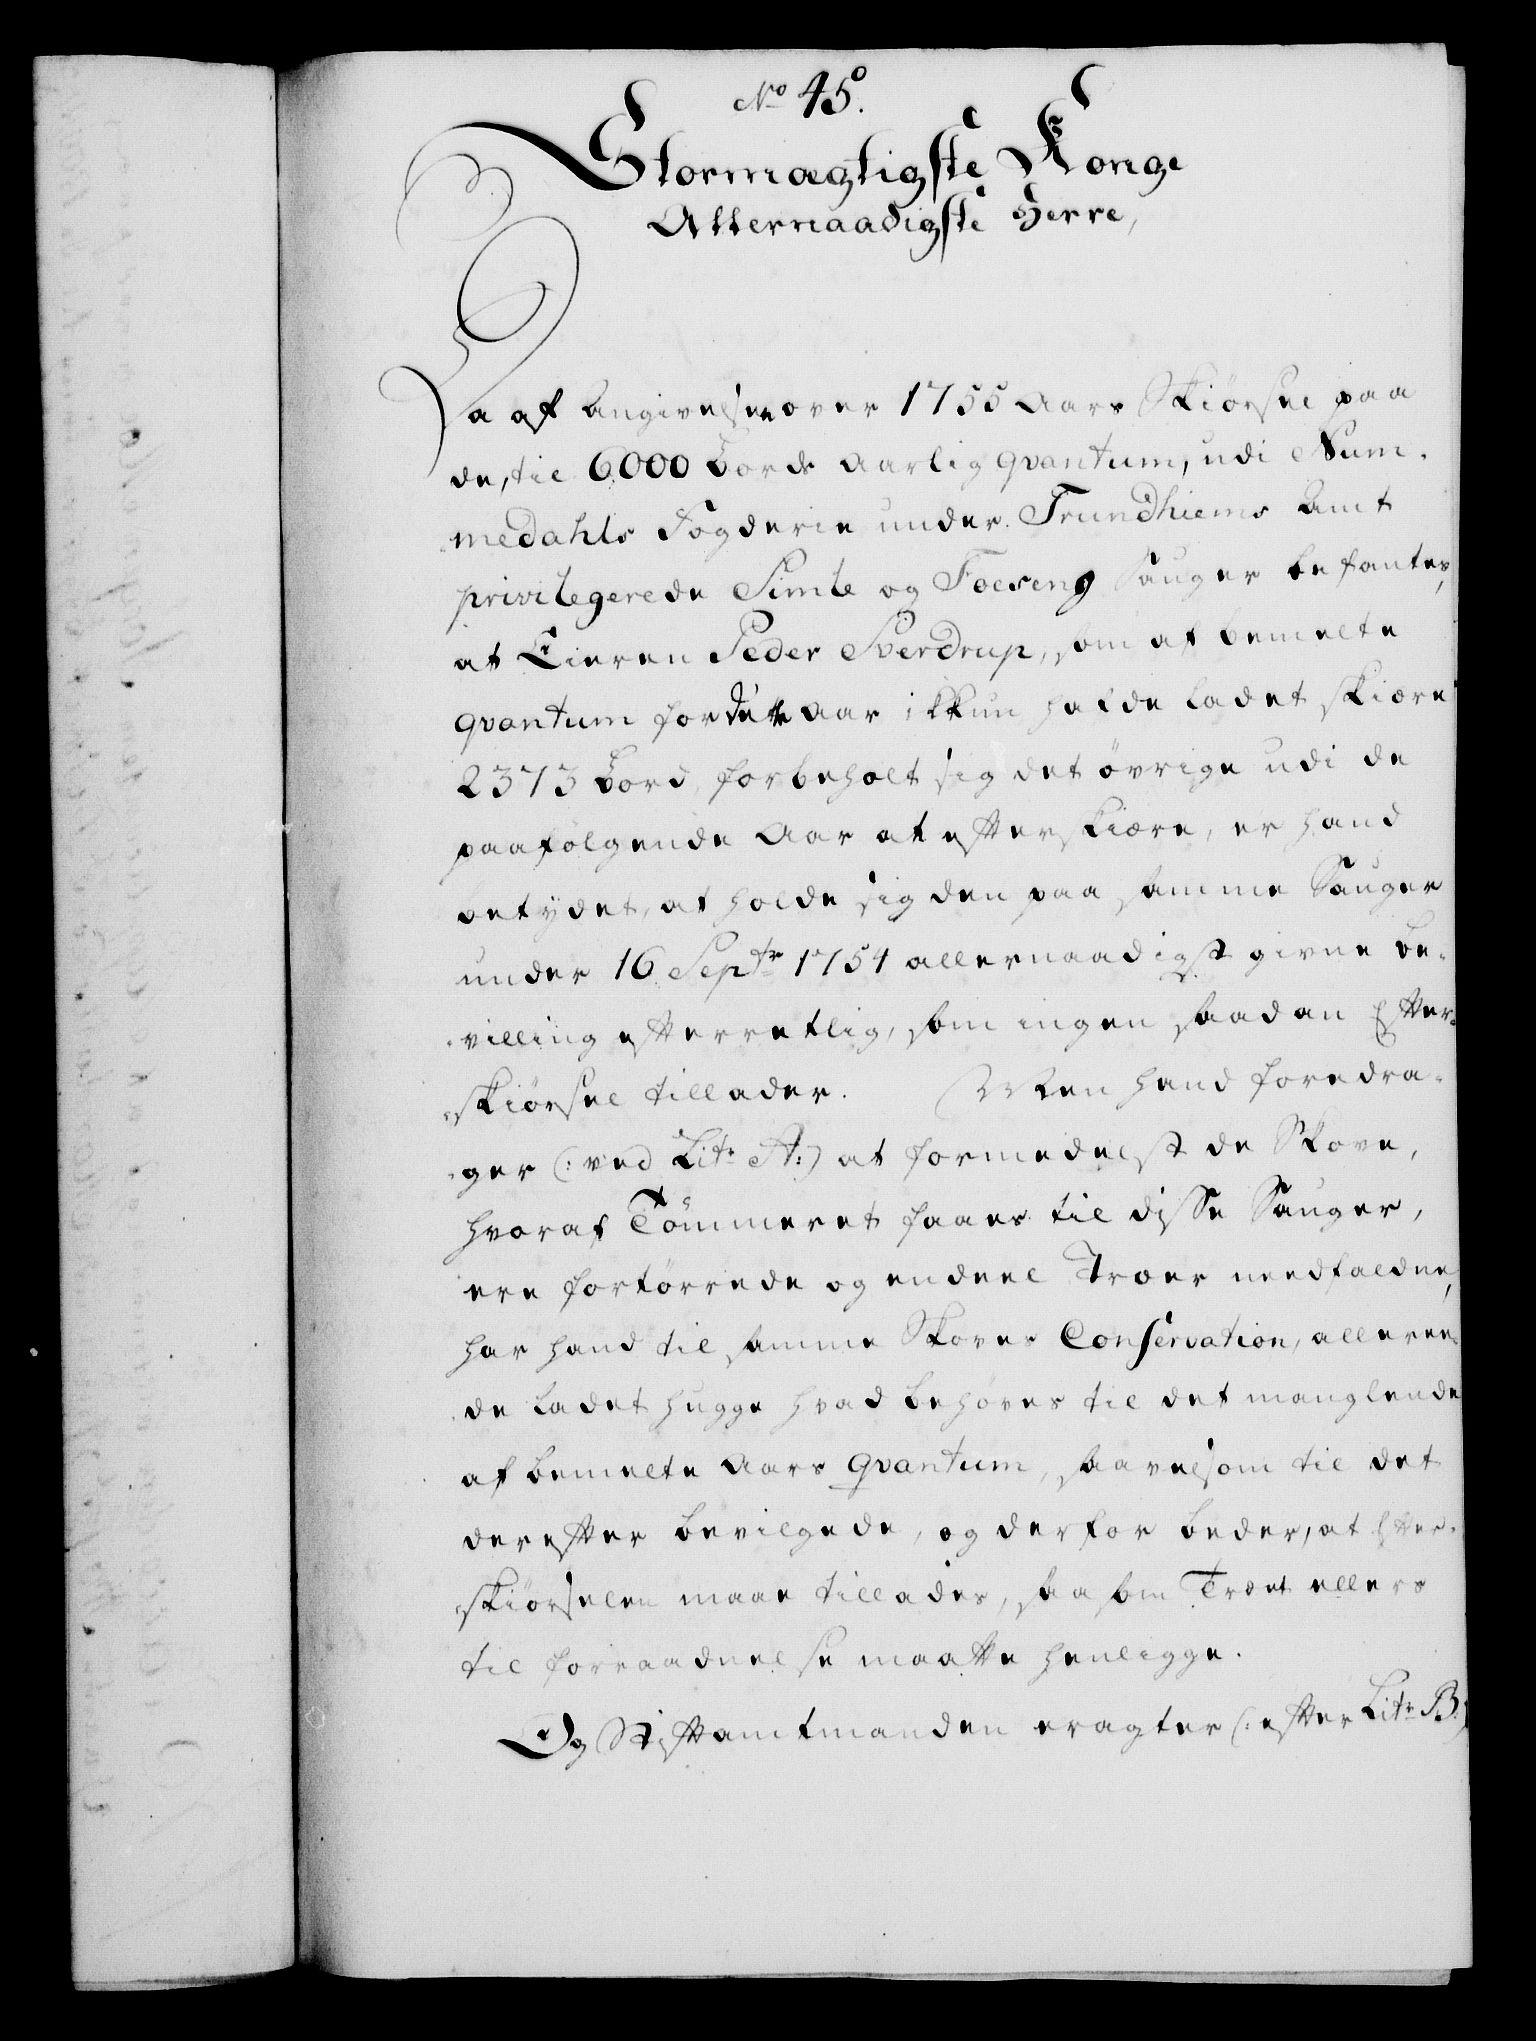 No 45.
Stormægtigste Konge
Allernaadigste Herre,
Da af Angivelsen over 1755 Aars Skiørsel paa
de, til 6000 Bords Aarlig qvantum, udi Num-
medahls Fogderie under Trundhiems Amt
privilegerede Simle og Foesens Sauger befantes,
at Eieren Peder Sverdrup, som af bemelte
qvantum for dette Aar ikkun hafde ladet skiære
2373 Bord, forbeholt sig det øvrige udi de
paafølgende Aar at efterskiære, er hand
betydet, at holde sig den paa samme Sauger
under 16 Septr 1754 allernaadigst givne be-
villing efterretlig, som ingen saadan Efter-
skiørsel tillader. Men hand foredra-
ger (: ved Litr A:) at formedelst de Skove,
hvoraf Tømmeret faaes til disse Sauger,
ere fortørrede og endeel Træer needfaldne,
har hand til samme Skoves Conservation, alleree-
de ladet hugge hvad behøves til det manglende
af bemelte Aars qvantum, saavelsom til det
derefter bevilgede, og derfor beder, at Efter-
skiørselen maae tillades, saasom Træet ellers
til forraadnelse maatte henligge.
Og Stiftamtmanden eragter (: efter Litr B:)